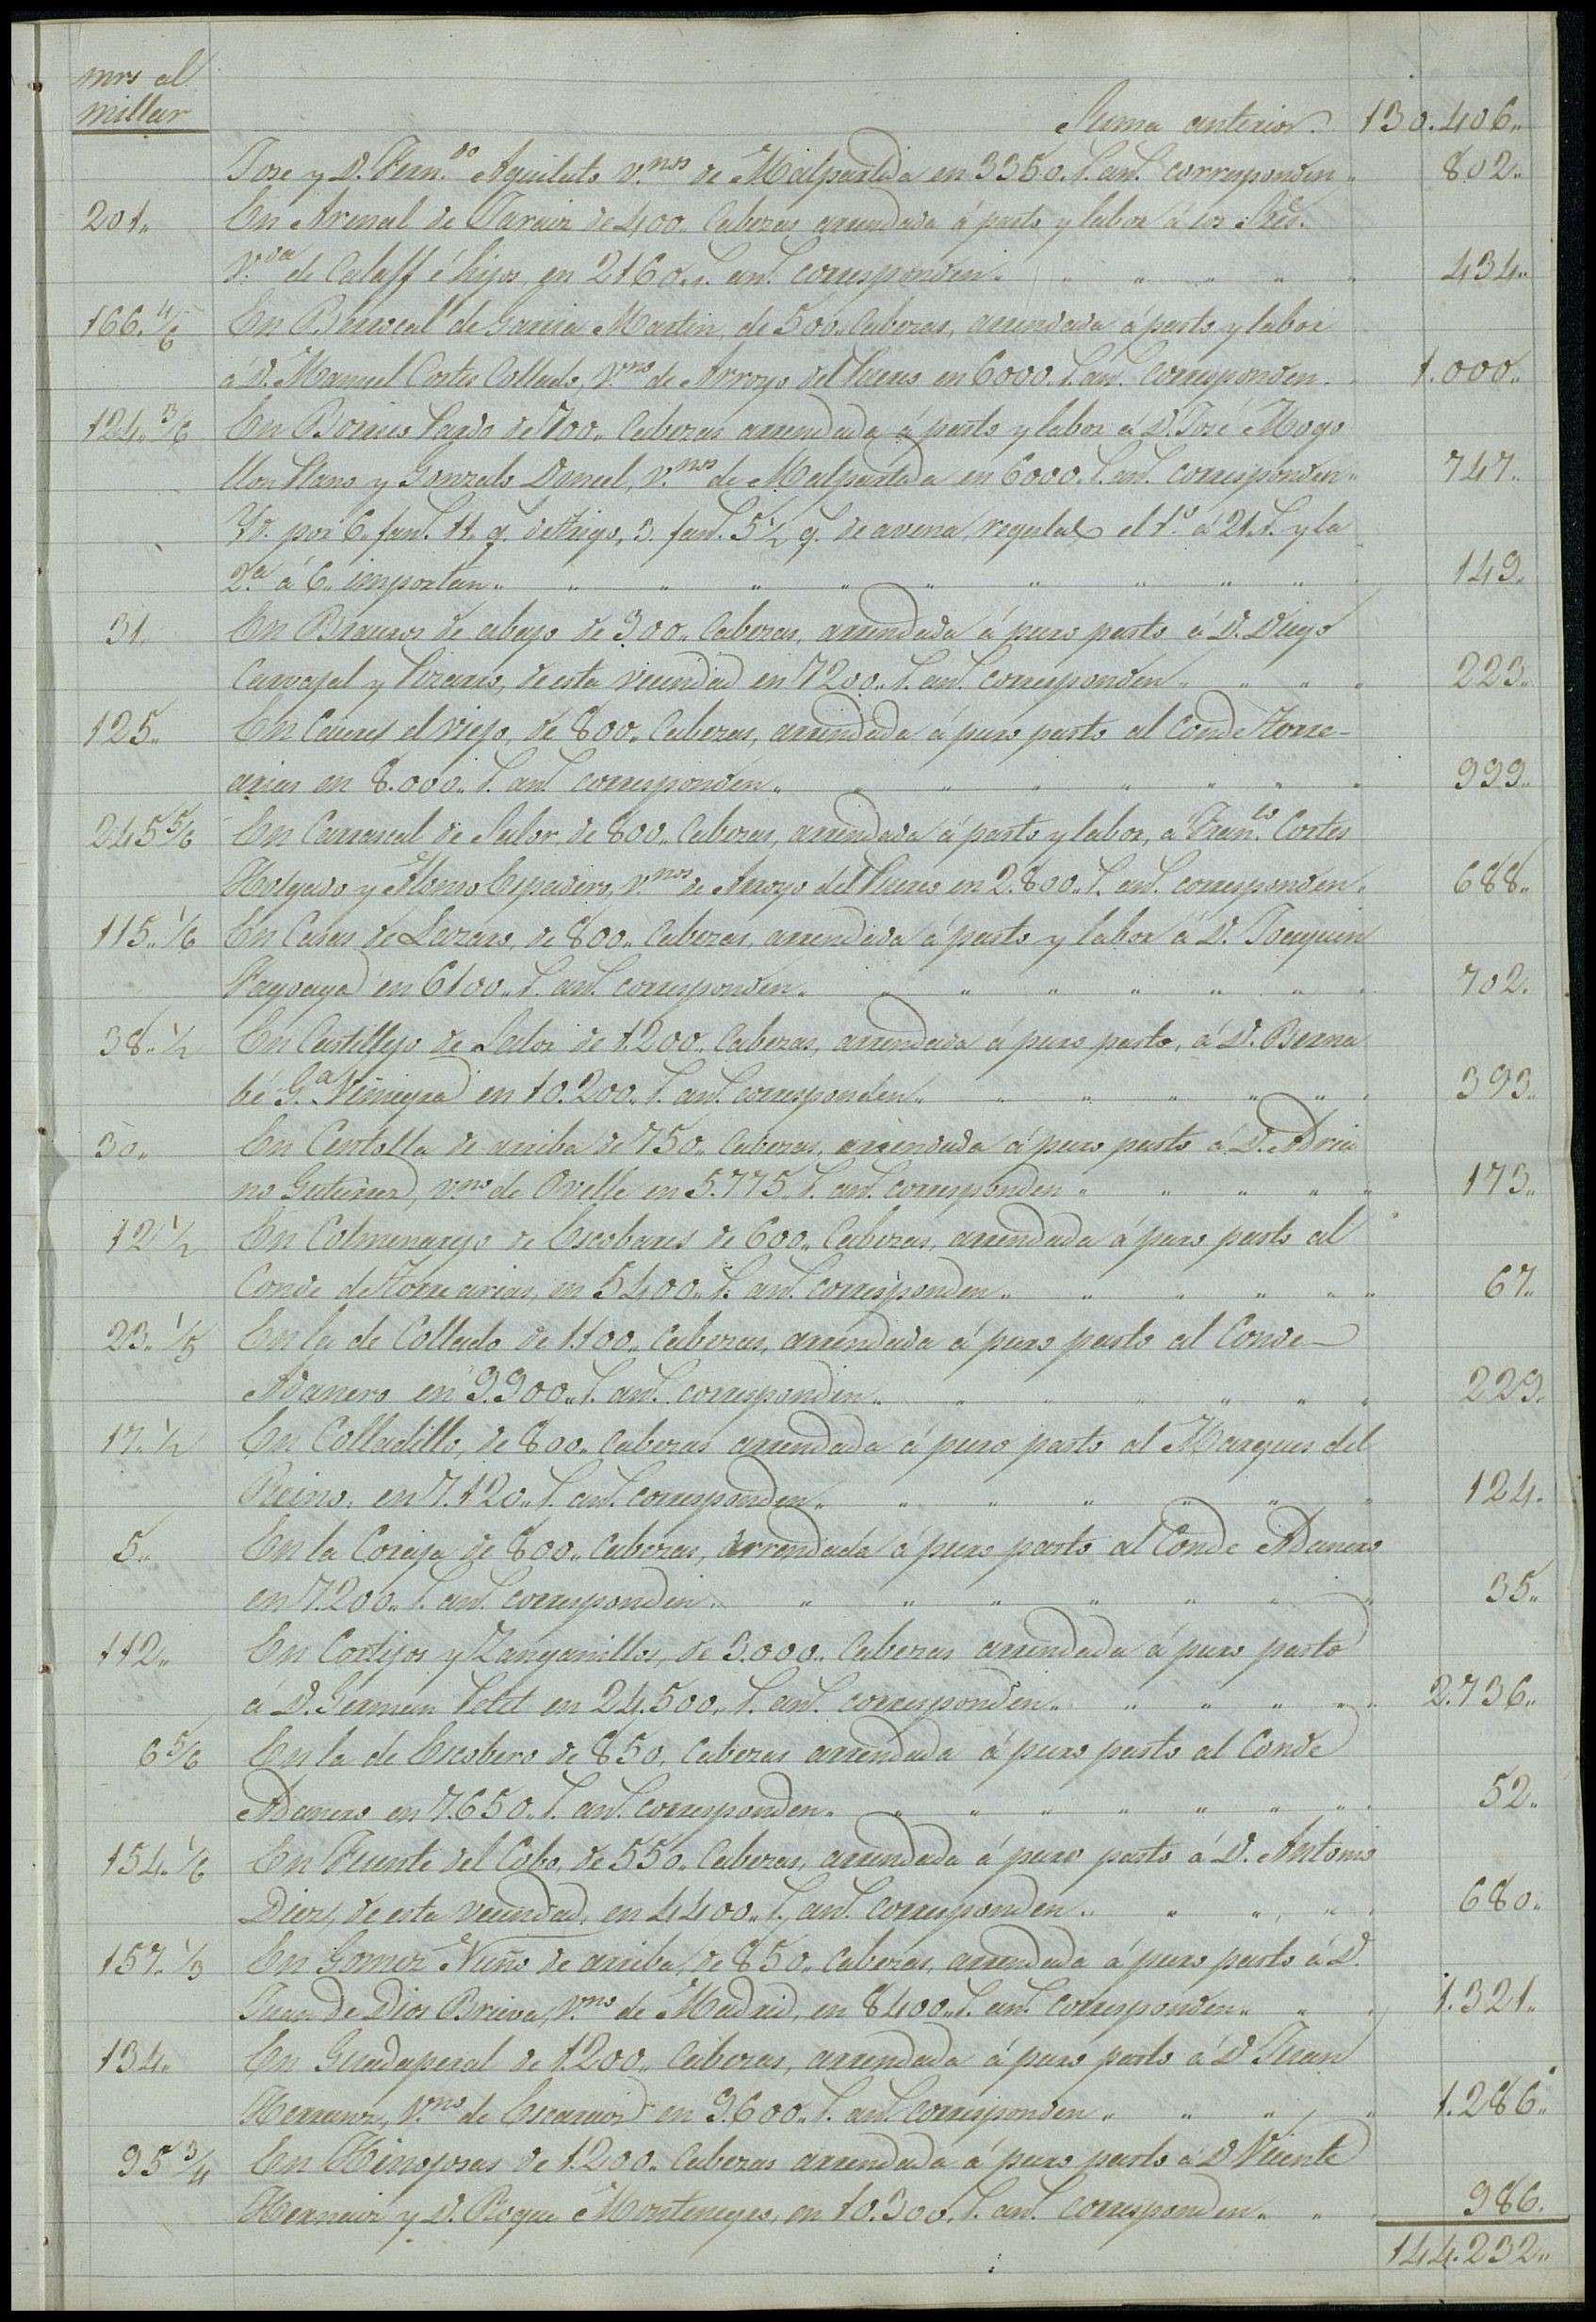 mrs al
millar
Suma anterior. 130.406.,
Jose y D. Fern.do Aguilito v.nos de Malpartida en 3350. r. an.l corresponden 802.,
201., En Arenal de Taraiz de 400. Cabezas arrendada á pasto y labor á los Sres.
V.da de Calaff é hijos, en 2160., r. an.l corresponden 434.,
166. 4/6 En Berrocal de Garcia Martin, de 500., Cabezas, arrendada á pasto y labor
á D. Manuel Cortes Collado, V.no de Arroyo del Puerco en 6000. r. an.l corresponden. 1.000.,
124., 3/6 En Pardo de 700., Cabezas arrendada á pasto y labor á D. José Mogo
llon Llano y Gonzalo Doncel, v.nos de Malpartida en 6000. r. an.l corresponden., 747.,
Yd. por 6., fan.s 11. q. de trigo, 3. fan.s 5 1/2 q. de avena, regulada el 1.o á 21. r. y la
2.a á 6., importan., 149.
31., En Brauzos de abajo de 900., Cabezas, arrendada á puro pasto á D. Diego
Carvajal y Pizarro, de esta vecindad en 7200., r. an.l corresponden., 223.,
125., En Caceres el viejo, de 800., Cabezas, arrendada á puro pasto al Conde Torre-
arias en 8.000., r. an.l corresponden., 999.,
245 5/6 En Carrascal de Salor, de 800., Cabezas, arrendada á pasto y labor, á Fran.co Cortes
Holgado y Alonso Espadero, v.nos de Arroyo del Puerco en 2.800., r. an.l corresponden. 688.,
115., 1/6 En Casas de Lazaro, de 800., Cabezas, arrendada á pasto y labor á D. Joaquin
en 6100., r. an.l corresponden. 702.
38., 1/2 En Castillejo de Salor de 1.200., Cabezas, arrendada á puro pasto, á D. Berna
bé G.a Viniegra en 10.200., r. an.l corresponden., 393.,
30., En Centolla de arriba de 750., Cabezas, arrendada á puro pasto á D. Adria
no Gutierrez, v.no de Ovelle en 5.775., r. an.l corresponden., 173.,
12 1/2 En Colmenarejo de Escobares de 600., Cabezas, arrendada á puro pasto al
Conde de Torre arias, en 5400., r. an.l corresponden., 67.,
23., 1/5 En la de Collado de 1.100., Cabezas, arrendada á puro pasto al Conde
Adanero en 9.900., r. an.l corresponden., 229.
17., 1/2 En Colladillo, de 800., Cabezas arrendada á puro pasto al Marques del
Reino, en 7.120., r. an.l corresponden., 124.
5., En la Coraja de 800., Cabezas, arrendada á puro pasto al Conde Adanero
en 7.200., r. an.l corresponden., 35.,
112., En Cortijos y Zanganillos, de 3.000., Cabezas arrendada á puro pasto
á D. German Petit en 24.500., r. an.l corresponden., 2.736.,
6 5/6 En la de Escobero de 850., Cabezas arrendada á puro pasto al Conde
Adanero en 7.650., r. an.l corresponden., 52.,
154., 1/6 En Fuente del Cobo, de 550., Cabezas, arrendada á puro pasto á D. Antonio
Diez, de esta vecindad, en 4400., r. an.l corresponden., 680.,
157., 1/3 En Gomez Nuño de arriba, de 850., Cabezas, arrendada á puro pasto á D.
Juan de Dios Brieva, V.no de Madrid, en 8400., r. an.l corresponden., 1.321.,
134., En Guadaperal de 1.200., Cabezas, arrendada á puro pasto á D. Juan
Herranz, V.no de Escaraiz en 9.600., r. an.l corresponden., 1.286.,
95 3/4 En Hinojosas de 1.200., Cabezas arrendada á puro pasto á D. Vicente
Hernaiz y D. Roque Montenegro, en 10.300., r. an.l corresponden., 986.
144.232.,